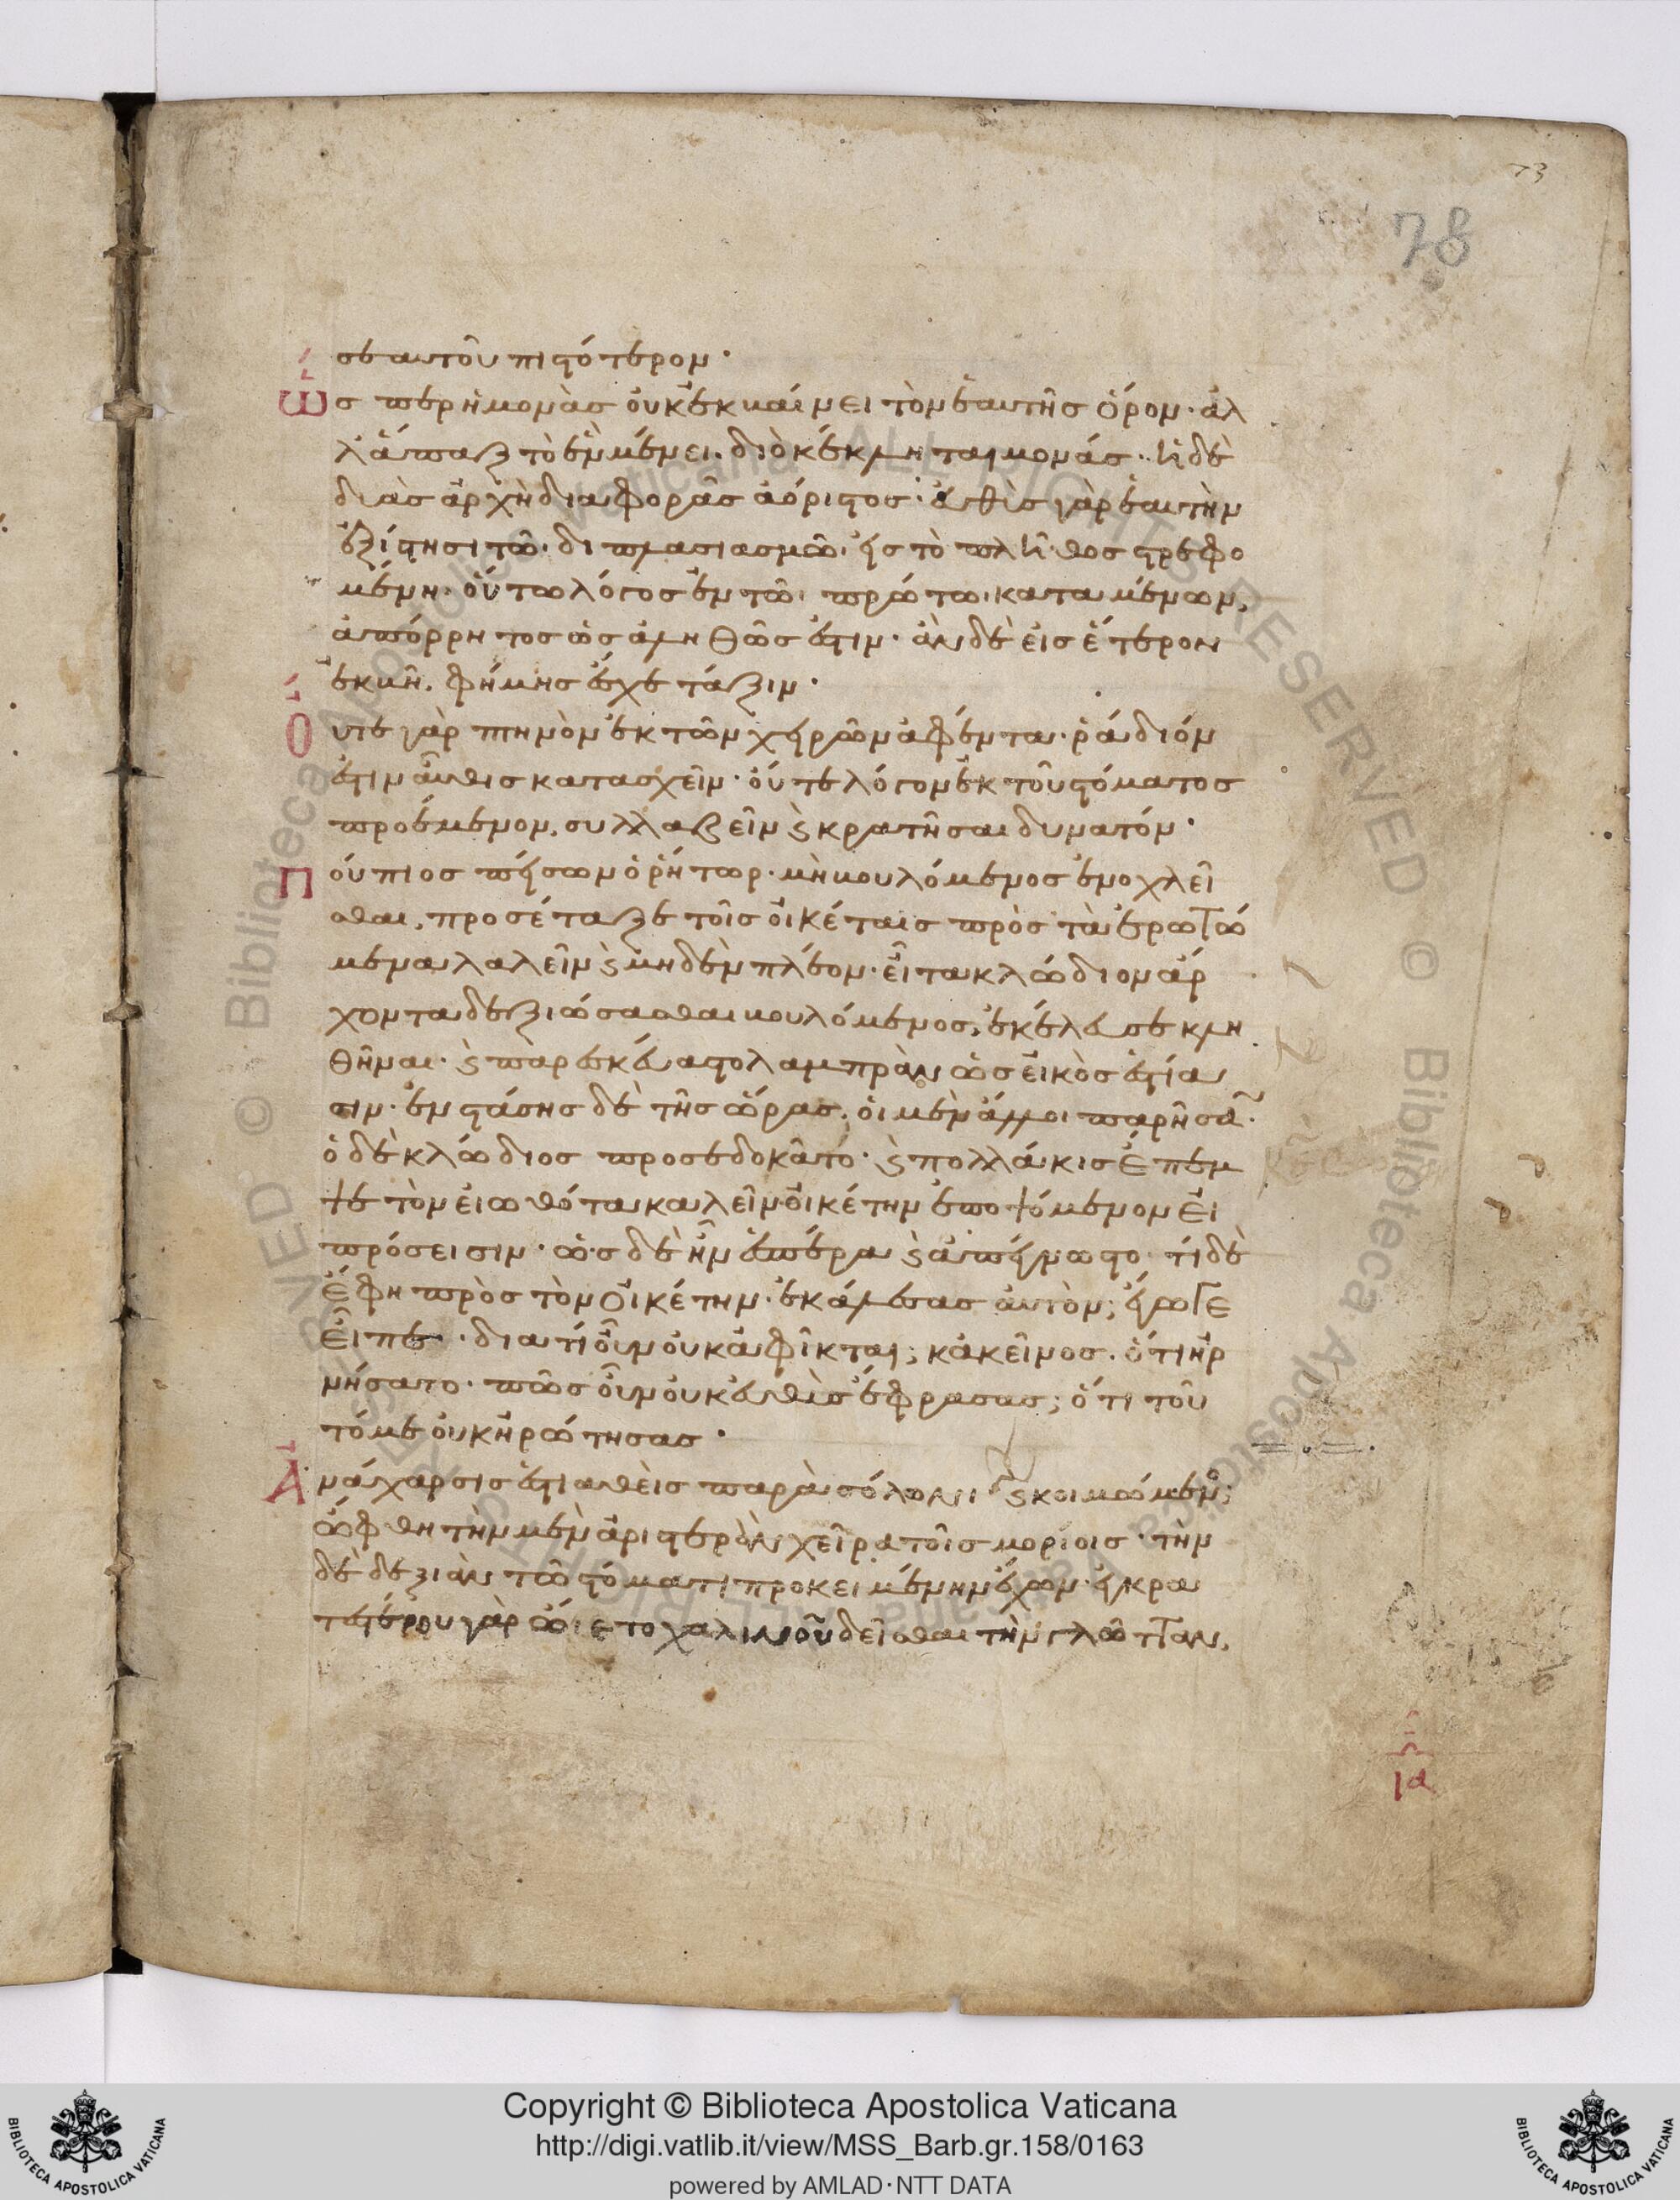 73
78
σεαυτοῦ πιστότερον·
Ὥσπερ ἡ μονὰς οὐκ ἐκβαίνει τὸν ἑαυτῆς ὅρον· ἀλ
λ' ἅπαξ τὸ ἓν μένει. διὸ κέκληται μονάς· ἡ δὲ
δυὰς ἀρχὴ διαφορᾶς ἀόριστος· εὐθὺς γὰρ ἑαυτὴν
ἐξίστησι τῶ διπλασιασμῶ εἰς τὸ πλῆθος τρεφο
μένη· οὕτω λόγος ἐν τῶ πρώτω καταμένων,
ἀπόρρητος ὡς ἀληθῶς ἐστιν· ἂν δὲ εἰς ἕτερον
ἐκβῆ, φήμης ἔχε τάξιν·
Οὔτε γὰρ πτηνὸν ἐκ τῶν χειρῶν ἀφέντα ῥάδιόν
ἐστιν αὖθις κατασχεῖν· οὔτε λόγον ἐκ τοῦ στόματος
προέμενον, συλλαβεῖν ϗ κρατῆσαι δυνατόν·
Πούπιος πείσων ὁ ῥήτωρ· μὴ βουλόμενος ἐνοχλεῖ
σθαι, προσέταξε τοῖς οἰκέταις πρὸς τὰ ἐρωτώ
μενα λαλεῖν ϗ μηδὲν πλέον· εἶτα κλώδιον ἄρ
χοντα δεξιώσασθαι βουλόμενος, ἐκέλευσε κλη
θῆναι· ϗ παρεσκευάσατο λαμπρὰν ὡς εἰκὸς ἑστία
σιν· ἐνστάσης δὲ τῆς ὥρας, οἱ μὲν ἄλλοι παρῆσαν·
ὁ δὲ κλώδιος προσεδοκᾶτο· ϗ πολλάκις ἔπεμ
ψε τὸν εἰωθότα καλεῖν οἰκέτην ἐποψόμενον εἰ
πρόσεισιν· ὡς δὲ ἦν ἑσπέρα ϗ ἀπείρωστο· τί δὲ
ἔφη πρὸς τὸν οἰκέτην· ἐκάλεσας αὐτόν; ἔγωγε
εἶπε· διατί οὖν οὐκ ἀφῖκται; κἀκεῖνος· ὅτι ἠρ
νήσατο· πῶς οὖν οὐκ εὐθὺς ἔφρασας; ὅτι τοῦ
τό με οὐκ ἠρώτησας·
Ἀνάχαρσις ἑστιαθεὶς παρὰ σόλωνι ϗ κοιμώμενος
ὤφθη τὴν μὲν ἀριστερὰν χεῖρα τοῖς μορίοις· τὴν
δὲ δεξιὰν τῶ στόματι προκειμένην ἔχων· ἐγκρα
τεστέρου γὰρ ὤιετο χαλινοῦ δεῖσθαι τὴν γλῶτταν,
ια
Copyright © Biblioteca Apostolica Vaticana
http://digi.vatlib.it/view/MSS_Barb.gr.158/0163
powered by AMLAD·NTT DATA